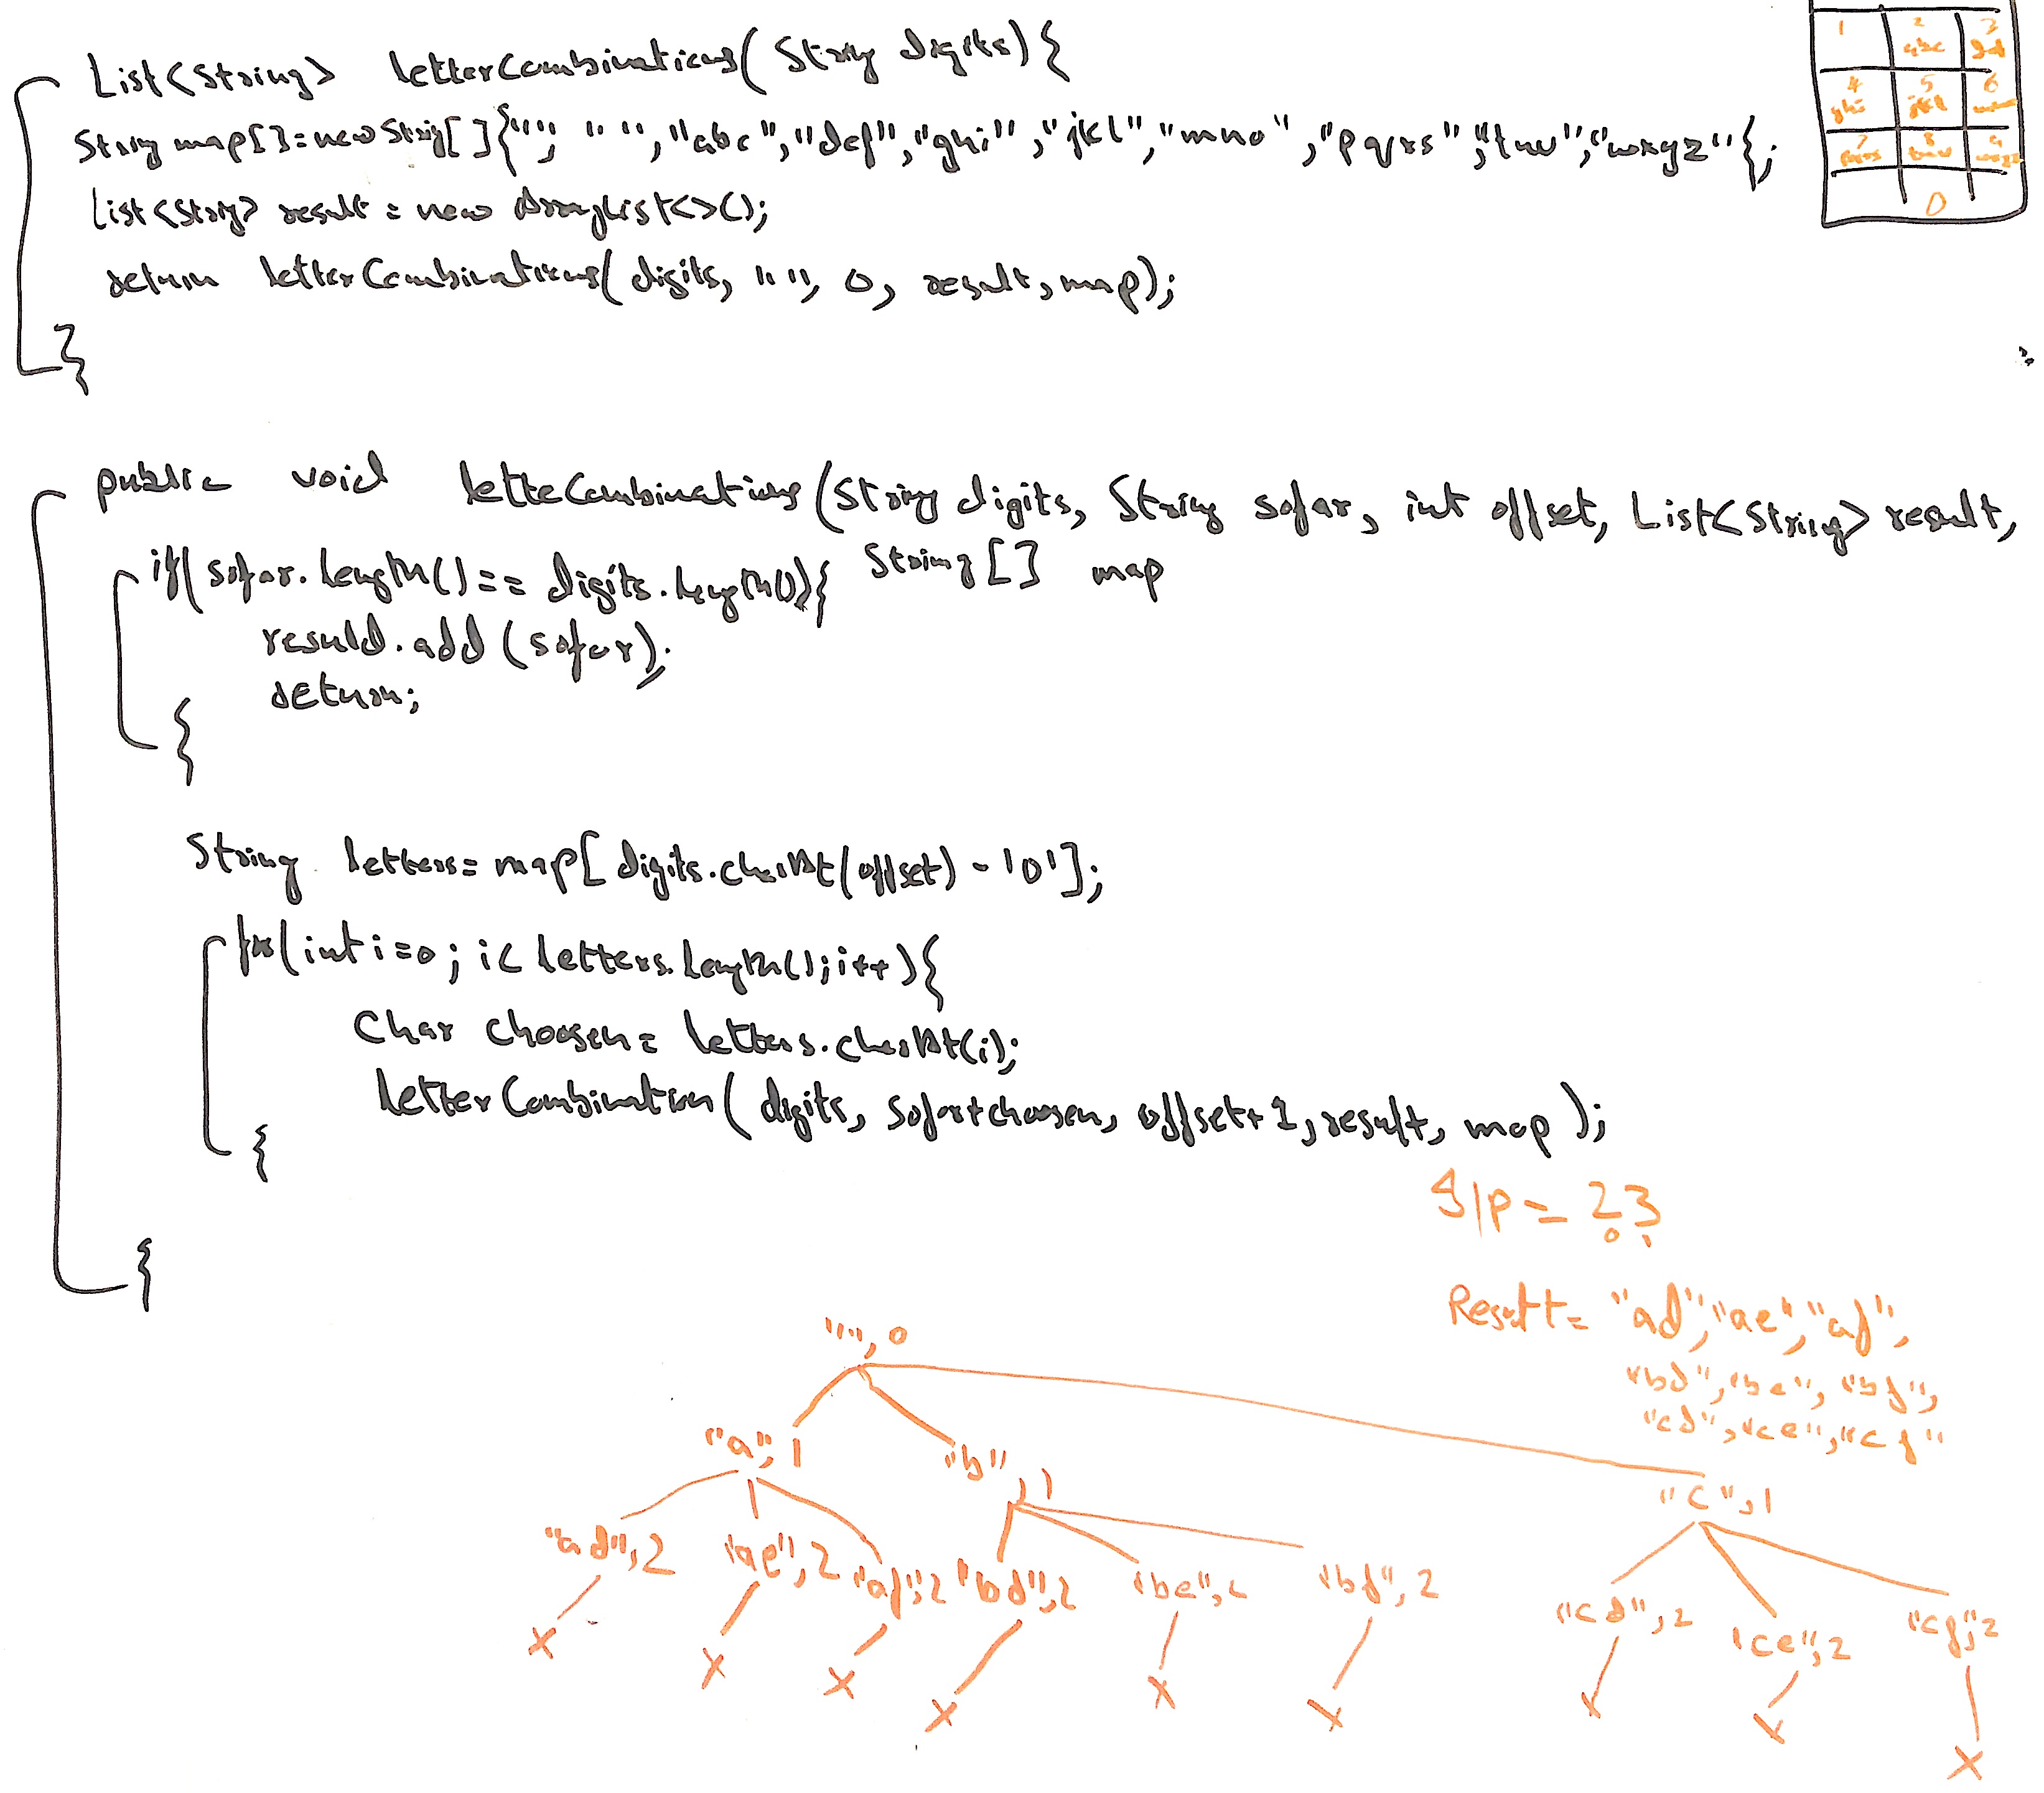 List<String> letterCombinations( String digits){
String map[]=new String[]{"", " ","abc","def","ghi","jkl","mno","pqrs","tuv","wxyz"{;
List<String> result = new ArrayList<>();
return letterCombinations( digits, "", 0, result, map);
}
1 2 3
abc def
4 5 6
ghi jkl mno
7 8 9
pqrs tuv wxyz
0
public void letteCombinations(String digits, String sofar, int offset, List<String> result,
String[] map
if( sofar.length()== digits.length()){
result.add (sofar);
return;
{
String letters= map[ digits.charAt(offset) - '0'];
for(int i=0; i< letters.length();i++){
Char choosen= letters.charAt(i);
letterCombination( digits, sofar+choosen, offset+1, result, map );
{
{
I/P = 23
0 1
Result= "ad","ae","af",
"bd","be","bf",
"cd","ce","cf"
"",0
"a",1 "b",1 "c",1
"ad",2 "ae",2 "af",2 "bd",2 "be",2 "bf",2 "cd",2 "ce",2 "cf",2
x x x x x x x x x